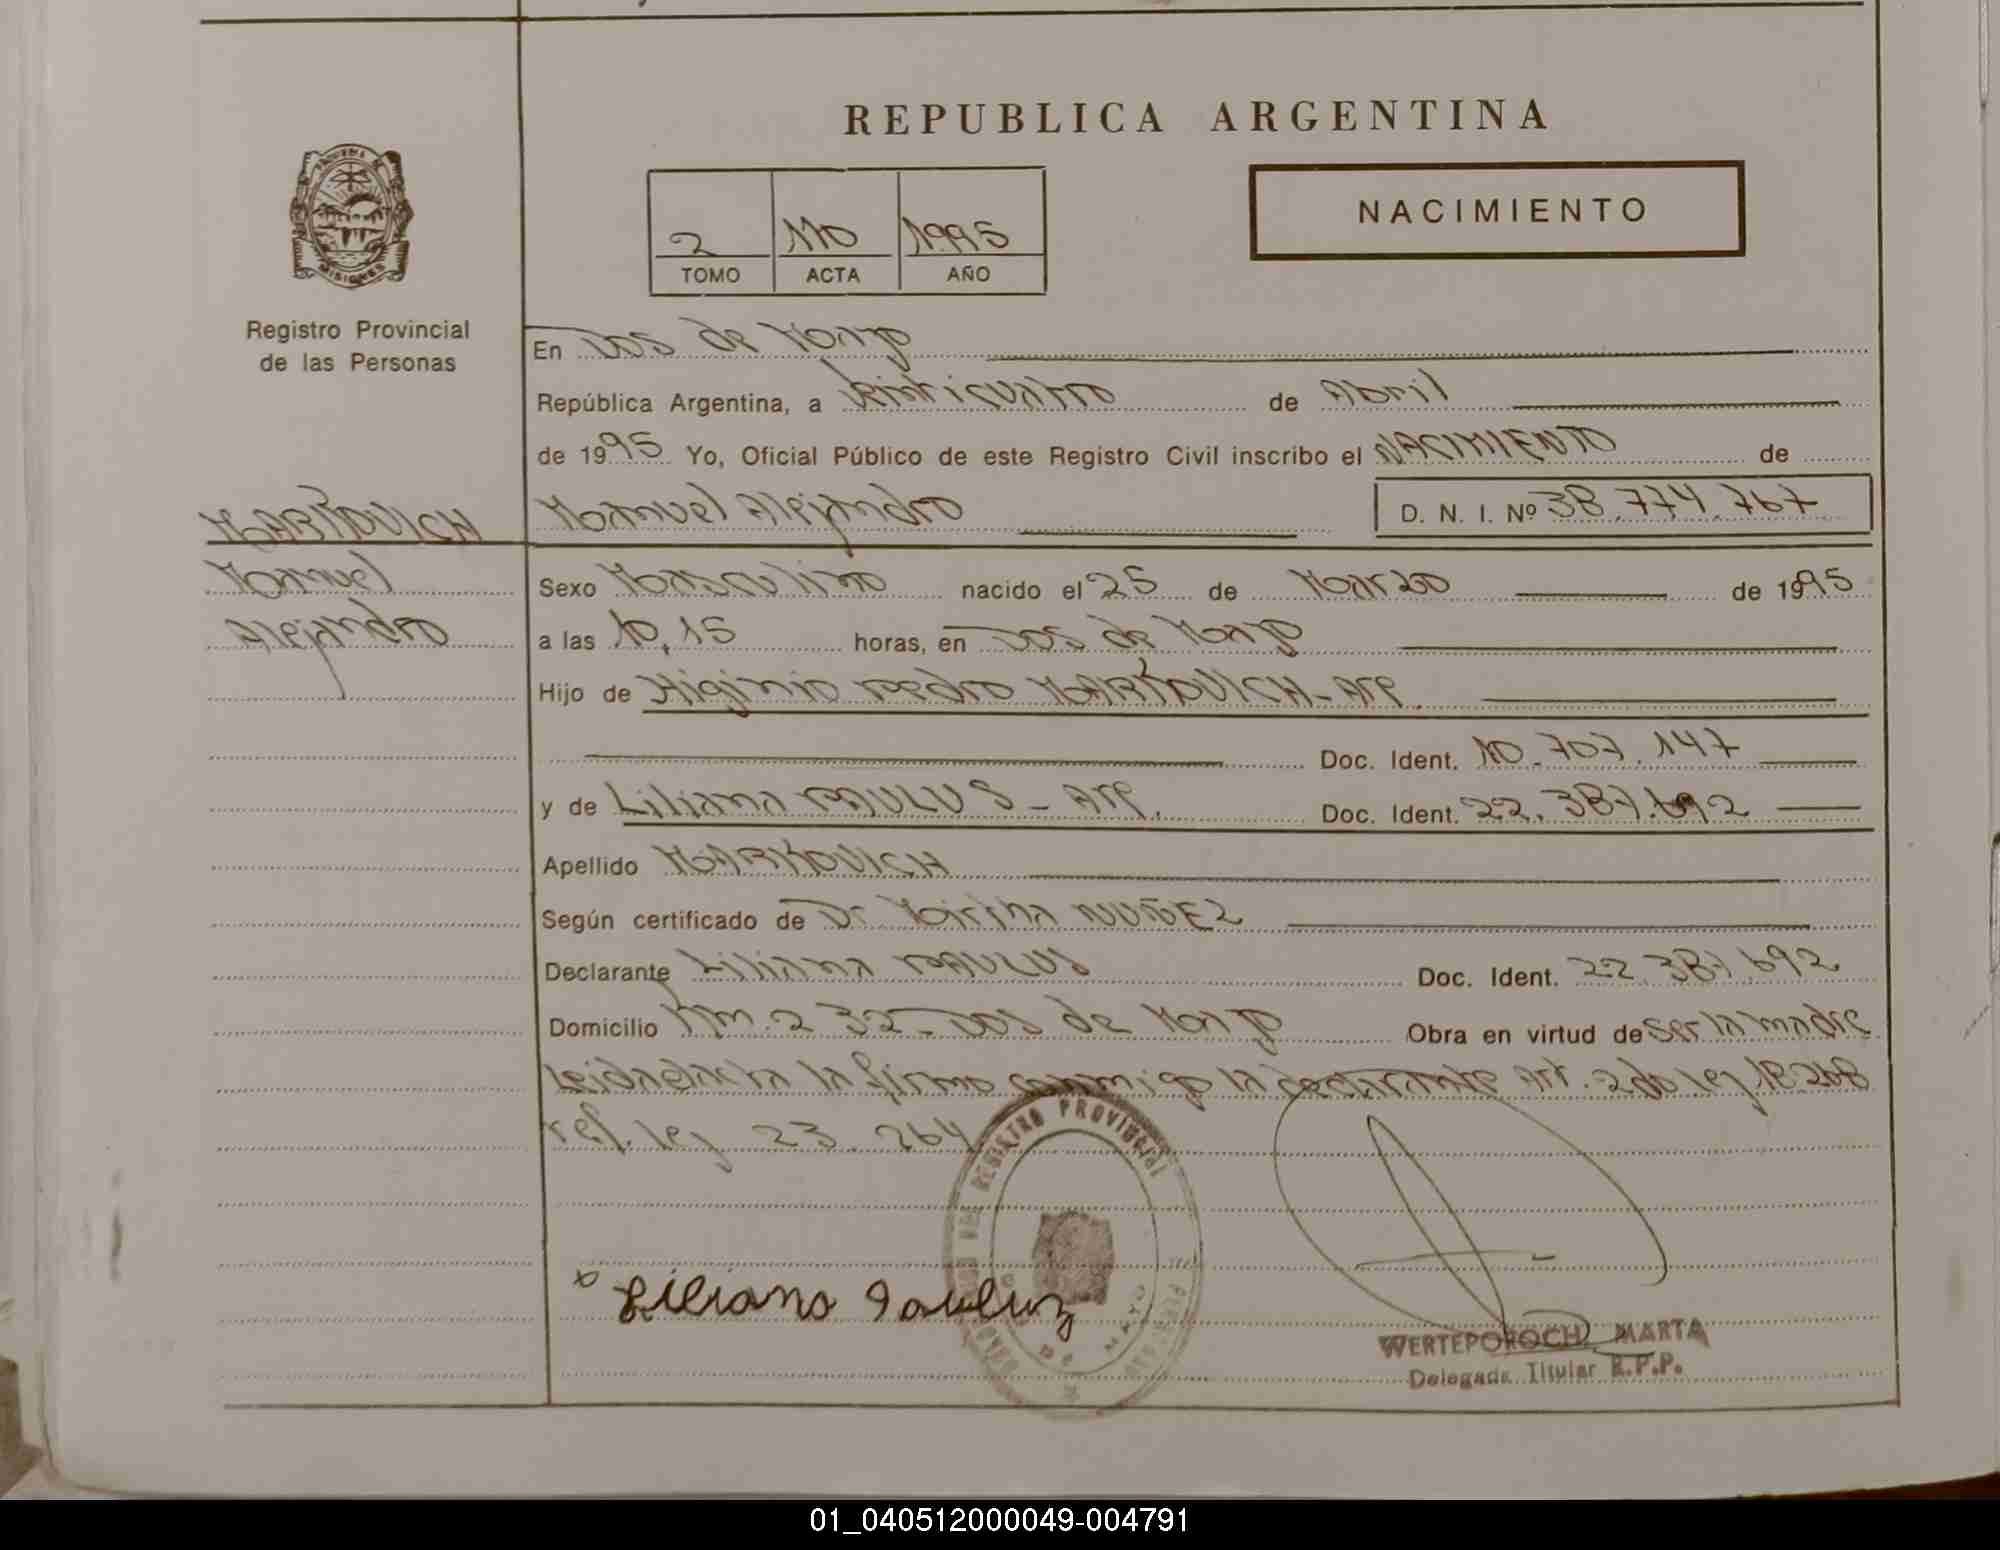 REPUBLICA ARGENTINA
NACIMIENTO
2 110 1995
TOMO ACTA AÑO
PROVINCIA DE
MISIONES
Registro Provincial
de las Personas
En Dos de Mayo
República Argentina, a Veinticuatro de Abril
de 1995 Yo, Oficial Público de este Registro Civil inscribo el NACIMIENTO de
MARKOVICH
Manuel
Alejandro
Manuel Alejandro D. N. I. Nº 38.774.767
Sexo Masculino nacido el 25 de Marzo de 1995
a las 10,15 horas, en Dos de Mayo
Hijo de Higinio Pedro MARKOVICH - Arg.
Doc. Ident. 10.707.147
y de Liliana PAULUS - Arg. Doc. Ident. 22.387.692
Apellido MARKOVICH
Según certificado de Dr NUÑEZ
Declarante Liliana PAULUS Doc. Ident. 22.387.692
Domicilio Km. 232 - Dos de Mayo Obra en virtud de ser la madre
Leida el acta la firma conmigo la declarante Art. 2do ley 18.268
ref. ley 23.264
REGISTRO PROVINCIAL
DE MAYO
x Liliana Pauluz
WERTEPOROCH MARTA
Delegada Titular R.P.P.
01_040512000049-004791